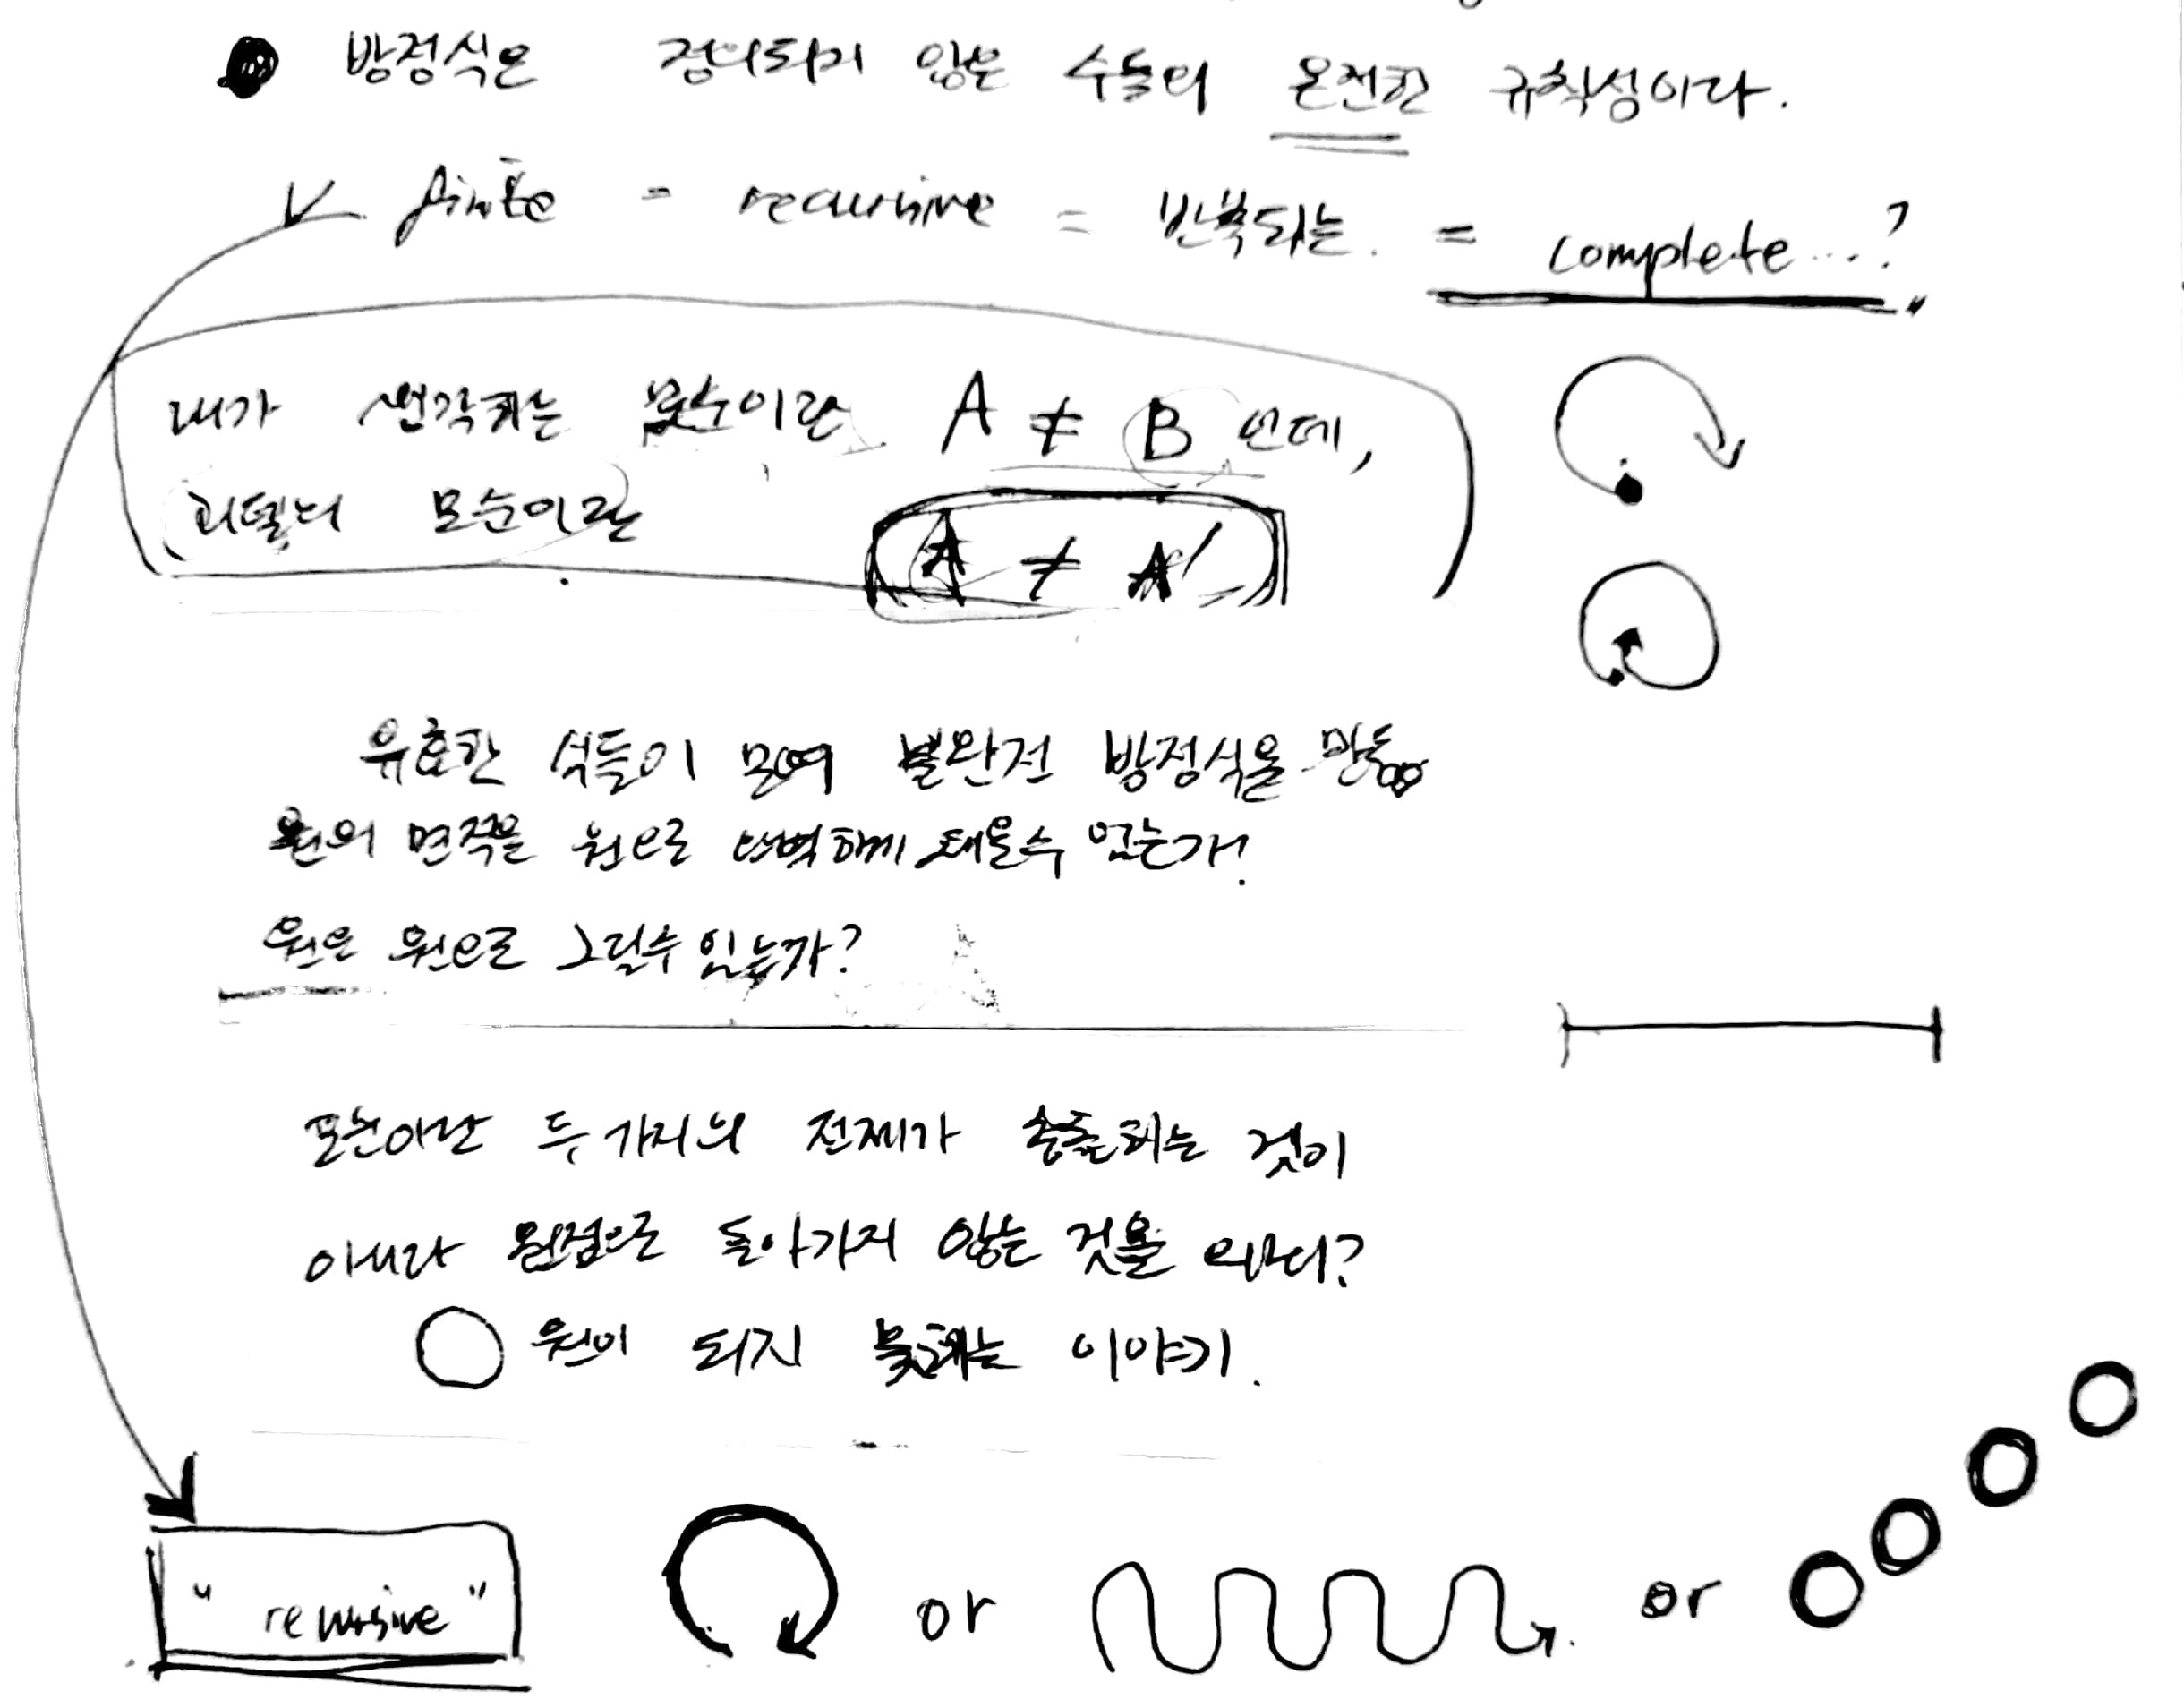 방정식은 정의되지 않은 수들의 온전한 규칙성이다.
finite = recursive = 반복되는. = complete...?
내가 생각하는 모순이란 A ≠ B 인데,
괴델의 모순이란 A ≠ A'
유효한 식들이 모여 불완전 방정식을 만듦
원의 면적을 원으로 완벽하게 채울수 있는가?
원은 원으로 그릴수 있는가?
모순이란 두가지의 전제가 충돌되는 것이
아니라 원점으로 돌아가지 않는 것을 의미?
원이 되지 못하는 이야기.
"recursive" or or